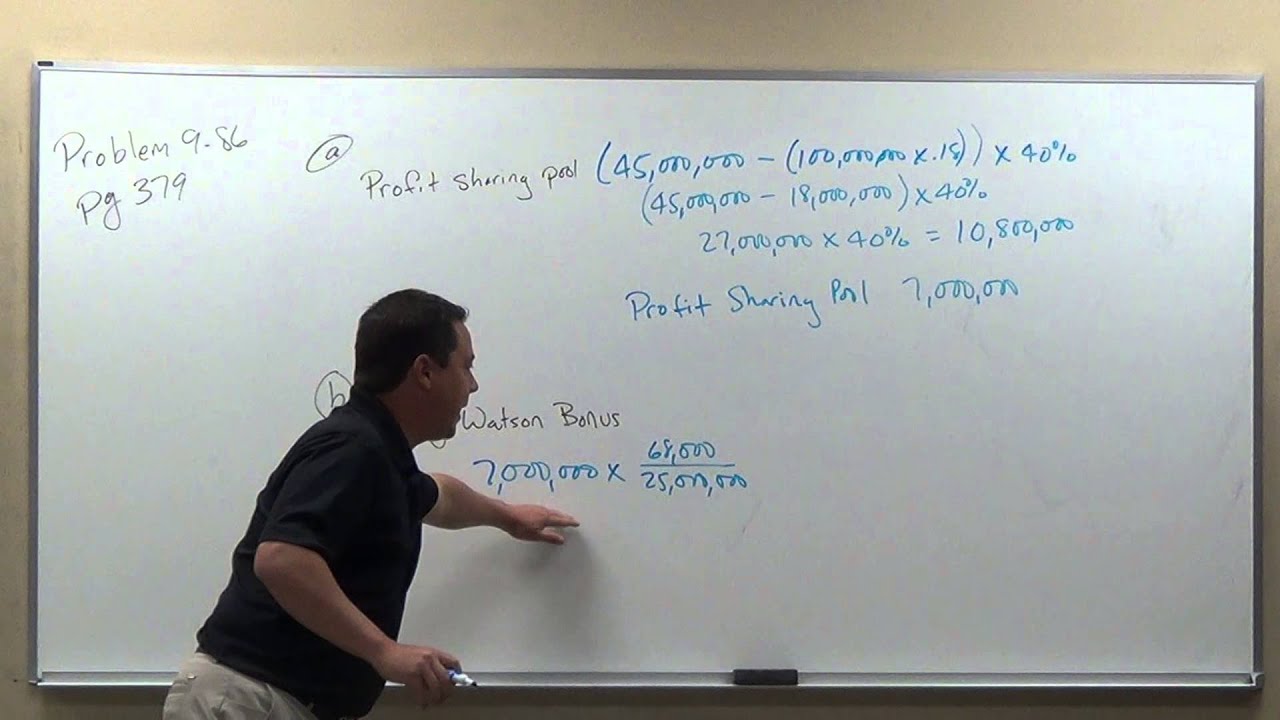 Problem 9-86
pg 379
(a)
Profit Sharing pool (45,000,000 - (100,000,000 x .18)) x 40%
(45,000,000 - 18,000,000) x 40%
27,000,000 x 40% = 10,800,000
Profit Sharing Pool 7,000,000
(b)
Watson Bonus
7,000,000 x 68,000
25,000,000